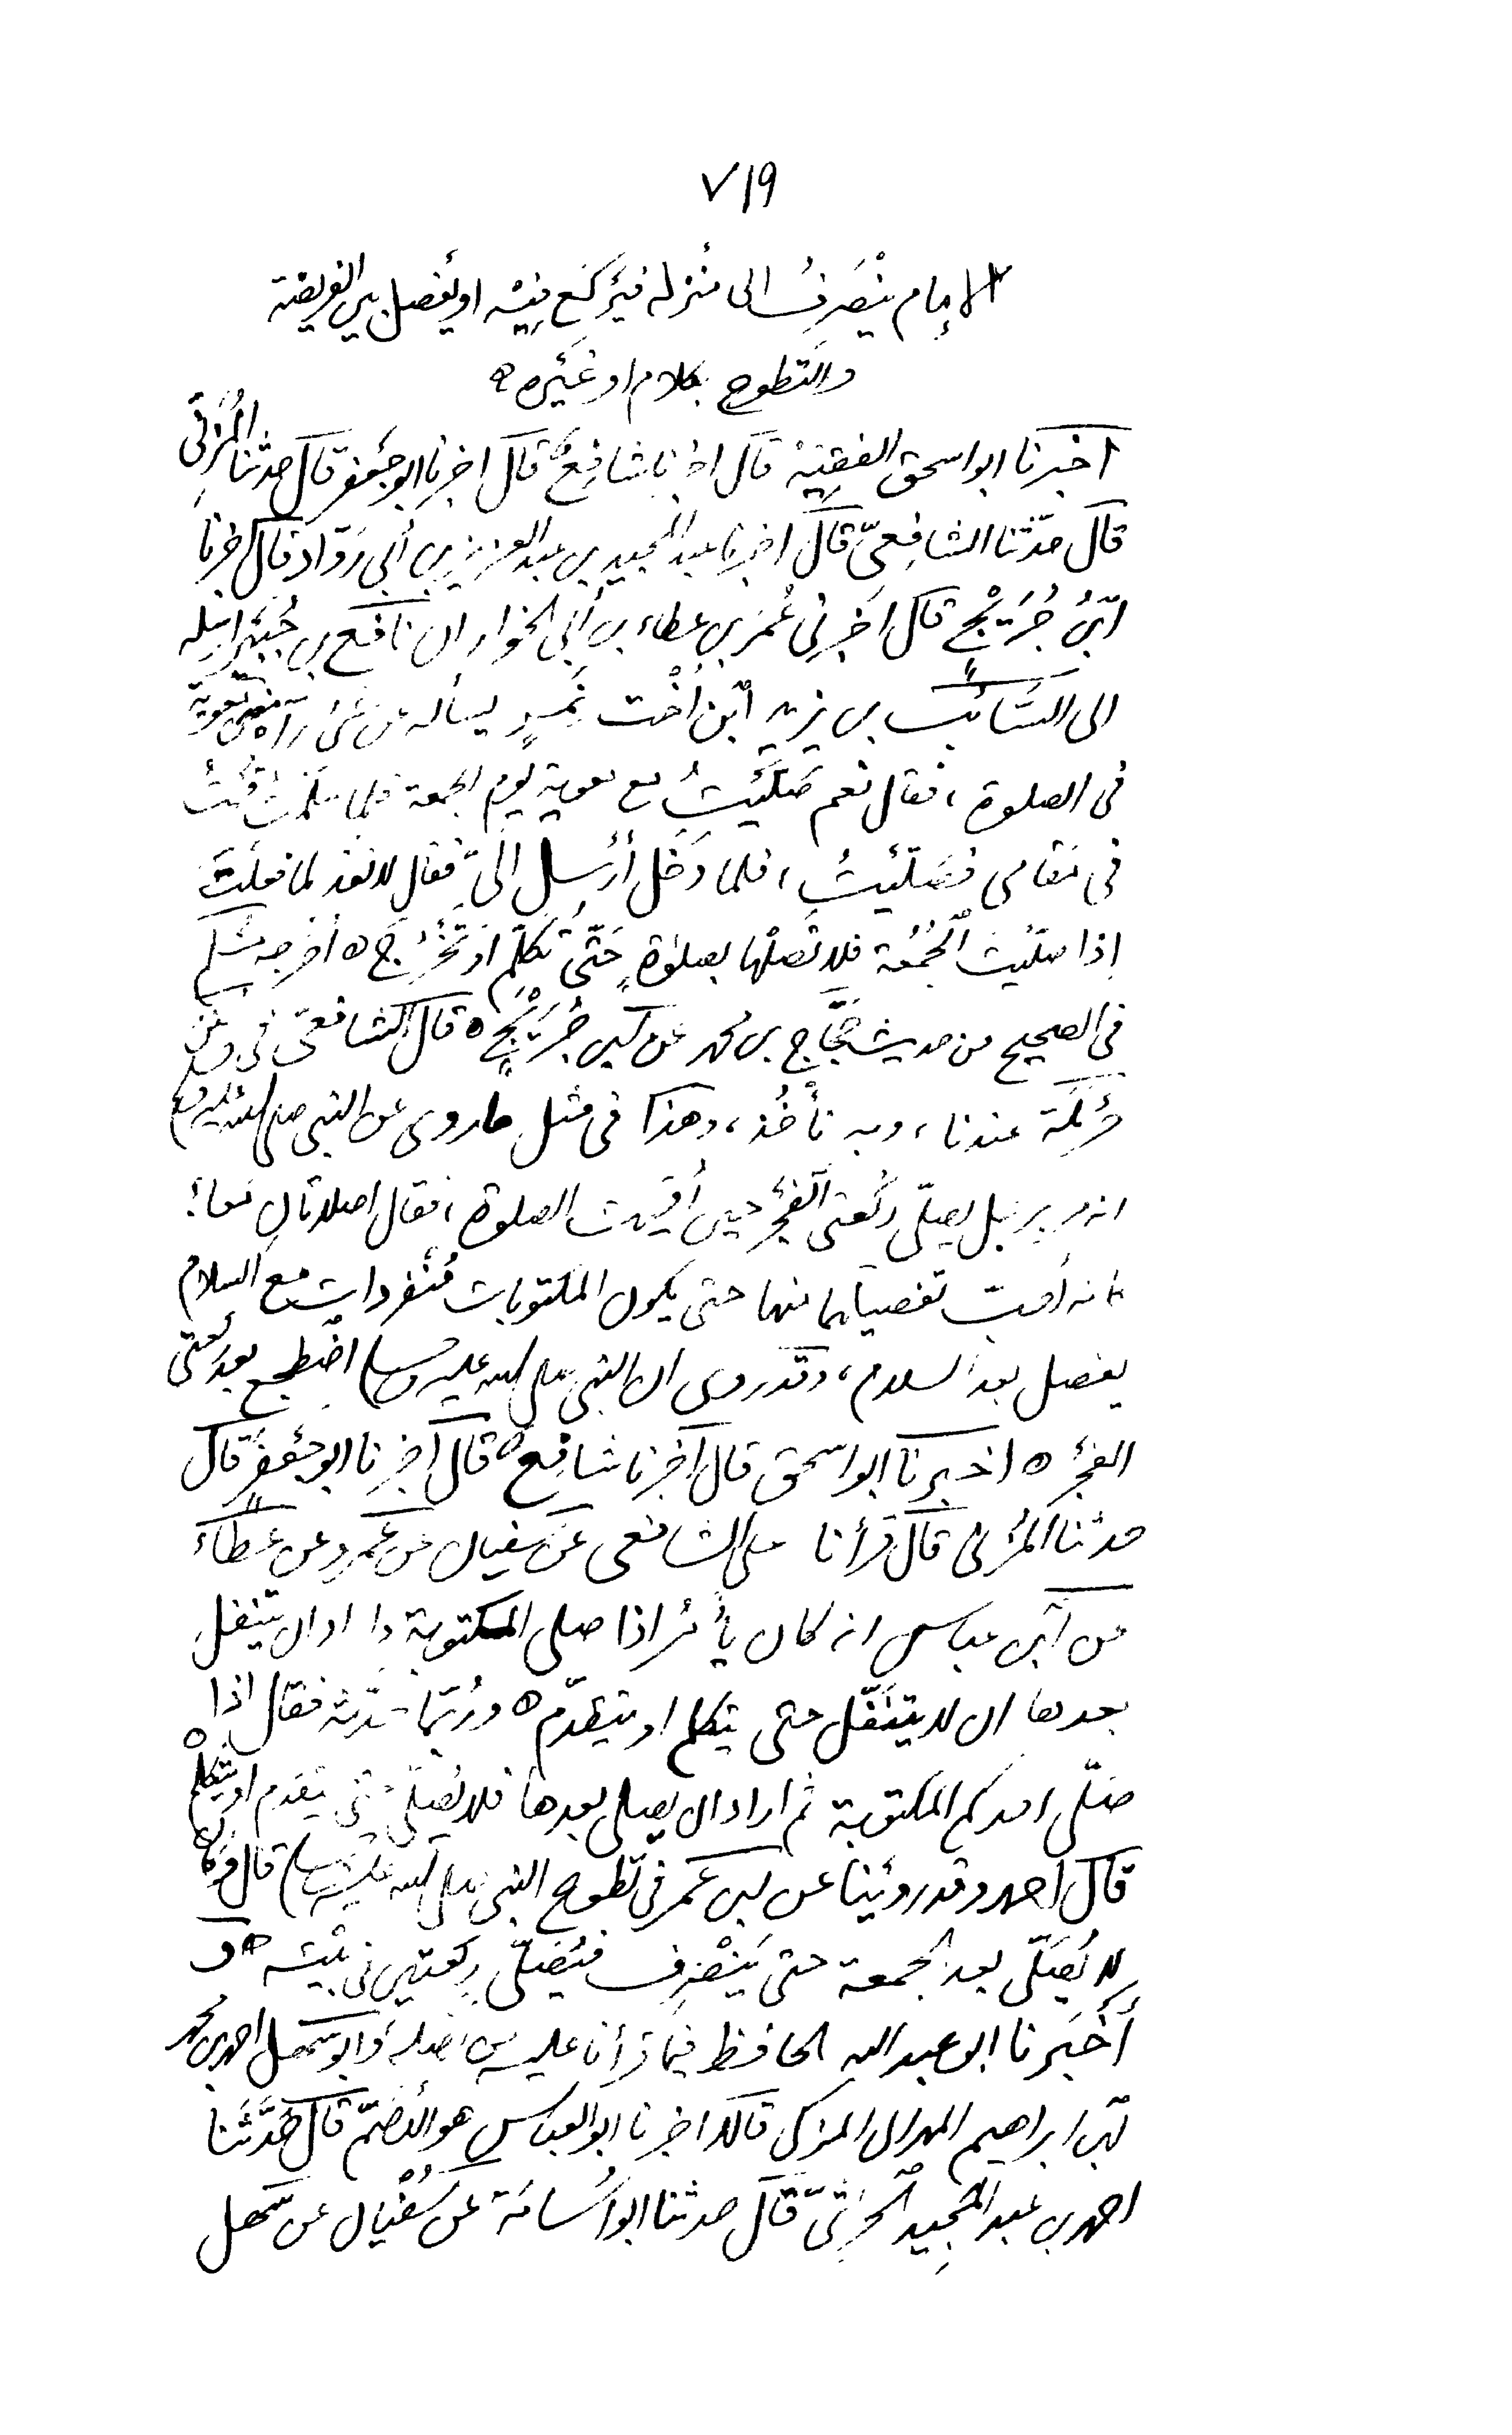 ٧١٩
الإمام يَنْصَرِفُ الى مَنْزله فَيَرْكَع فِيْه او يَفصل بين الفريضة
والتَطوع بكلام او غَيْره ه
اخبرنا ابو اسحق الفقِيْه قال انا شَافِعٌ قال اخبرنا ابو جعْفر قال حدثنا المُزَنِيّ
قال حدّثنا الشافِعيّ قال اخبرنا عبد المجيد بن عبد العزيز بن أبي رَوّاد قال اخبرنا
ابنُ جُرَيْجٍ قال اَخبرني عُمَر بن عطاء بن أبي الخوار ان نافع بن جُبَيْر ارسله
الى السَّائب بن يزيد ابن أُخْت نَمِرٍ يسأله عن شئ رآه منه معوية
في الصلوة ، فقال نعم صَلَّيْتُ مع معوية يوم الجمعة فلما سَلّمْتُ قُمْتُ
في مَقامي فصَلّيْتُ ، فلما دَخَل أرْسل الَيّ فقال لا تعد لما فعلتَ
إذا صلّيْتَ الْجُمُعَة فلا تَصلْها بصلوٰةٍ حَتّى تكلّم او تَخْرُجَ ه أخرجه مسْلم
في الصحيح من حديث حَجَّاج بن محمد عن ابن جُرَيْجٍ ه قال الشافعيّ في
حَرْمَلَة عندنا ، وبه نأْخُذ ، وهذا في مثل ما روى عن النبي صلى الله عليه وسلم
انه مر برجل يصلّي ركْعتى الْفَجْر حين أُقيمت الصلوة ، فقال اصلاتان معا ؛
كانه أحبّ تفصيلهما منها حتى يكون المكتوبات مُنْفردات مع السلام
يفصل بعد السلام ، وقد روى ان النبي صلى الله عليه وسلم اضْطجع بعد ركعتى
الفجْر ه اخبرنا ابو اسحق قال اخبرنا شافِعٌ قال اخبرنا ابو جعْفر قال
حدثنا المُزني قال قرأنا على الشافعى عن سفيان عن عَمرو عن عَطاَء
عن ابن عباس انه كان يأْمُر اذا صلى المكتوبة واراد ان يتنفل
بعدها ان لا يتنَفّل حتى يتكلم او يتقدّم ه ورُبّما حَدّثه فقال اذا
صَلّى احدكم المكتوبة ثم اراد ان يصلى بعدها فلا يُصَلّى حتى يتقدم او يتكلم
قال احمد وقد روَيْنا عن ابن عمر في تَطوع النبي صلى الله عليه وسلم قال وَكان
لا يُصَلّى بعد الجمعة حتى يَنْصَرِف فيُصَلّى ركعتين في بَيْته ه
أَخْبَرنا ابو عبد الله الحافظ فيما قرأنا عليه من اصله وابو سَهل احمد بن محمد
بن ابراهيم المهران المزكى قالا اخبرنا ابو العباس هو الأصَمّ قال حَدَّثَنا
احمد بن عبد المجيد الحارثيّ قال حدثنا ابو اُسَامَة عن سُفْيان عن سَهل